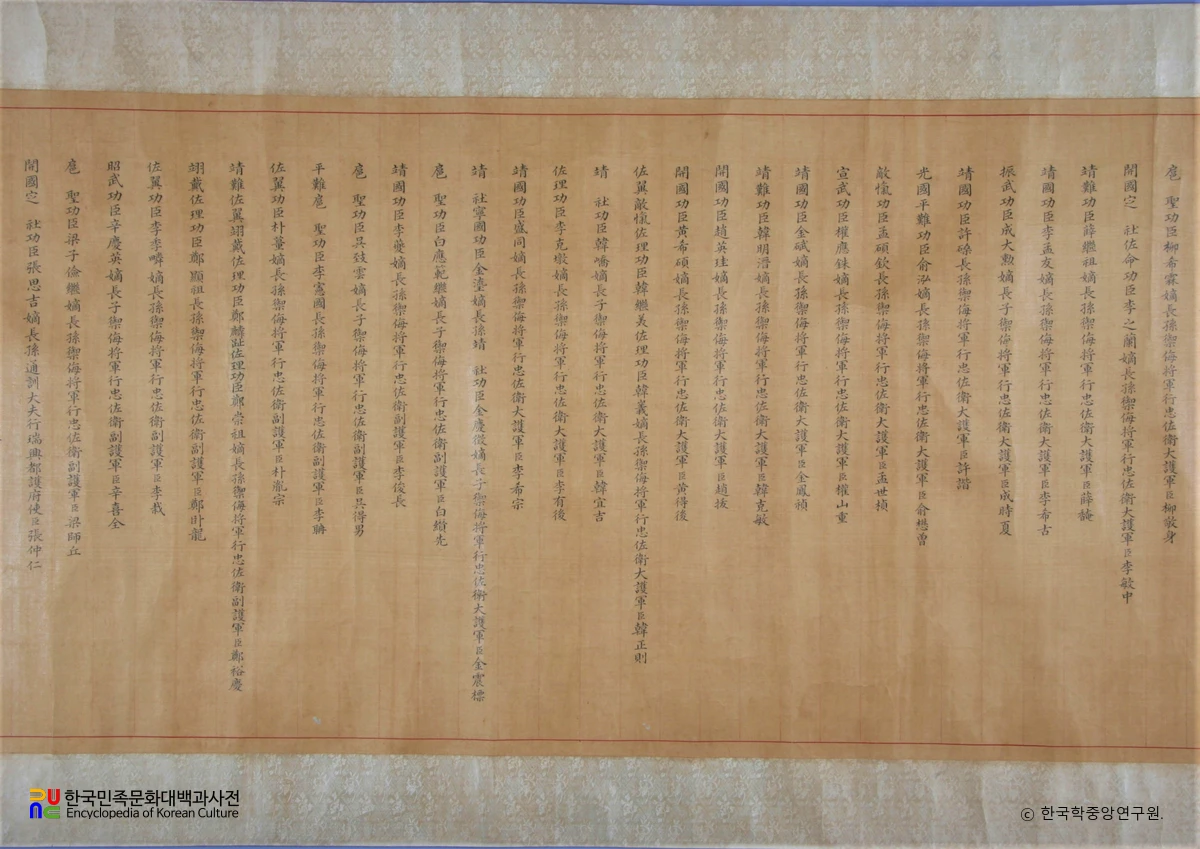 扈 聖功臣柳希霖嫡長孫禦侮將軍行忠佐衛大護軍臣柳敬身
開國定 社佐命功臣李之蘭嫡長孫禦侮將軍行忠佐衛大護軍臣李敏中
靖難功臣薛繼祖嫡長孫禦侮將軍行忠佐衛大護軍臣薛
靖國功臣李孟友嫡長孫禦侮將軍行忠佐衛大護軍臣李希古
振武功臣成大勲嫡長子禦侮將軍行忠佐衛大護軍臣成時夏
靖國功臣許磉長孫禦侮將軍行忠佐衛大護軍臣許諧
光國平難功臣俞泓嫡長孫禦侮將軍行忠佐衛大護軍臣俞想曾
敵愾功臣孟碩欽長孫禦侮將軍行忠佐衛大護軍臣孟世楨
宣武功臣權應銖嫡長孫禦侮將軍行忠佐衛大護軍臣權山重
靖國功臣金斌嫡長孫禦侮將軍行忠佐衛大護軍臣金鳳禎
靖難功臣韓明溍嫡長孫禦侮將軍行忠佐衛大護軍臣韓克敏
開國功臣趙英珪嫡長孫禦侮將軍行忠佐衛大護軍臣趙拔
開國功臣黃希碩嫡長孫禦侮將軍行忠佐衛大護軍臣黃得後
佐翼敵愾佐理功臣韓繼美佐理功臣韓嶬嫡長孫禦侮將軍行忠佐衛大護軍臣韓正則
靖 社功臣韓嶠嫡長子禦侮將軍行忠佐衛大護軍臣韓宜吉
佐理功臣李克墩嫡長孫禦侮將軍行忠佐衛大護軍臣李有後
靖國功臣盛同嫡長孫禦侮將軍行忠佐衛大護軍臣李希宗
靖 社寧國功臣金澄嫡長孫靖 社功臣金慶徵嫡長子禦侮將軍行忠佐衛大護軍臣金震標
扈 聖功臣白應範繼嫡長子禦侮將軍行忠佐衛副護軍臣白纘先
靖國功臣李夔嫡長孫禦侮將軍行忠佐衛副護軍臣李俊長
扈 聖功臣吳致雲嫡長子禦侮將軍行忠佐衛副護軍臣吳得男
平難扈 聖功臣李憲國長孫禦侮將軍行忠佐衛副護軍臣李
佐翼功臣朴薑嫡長孫禦侮將軍行忠佐衛副護軍臣朴胤宗
靖難佐翼翊戴佐理功臣鄭麟趾佐理功臣鄭崇祖嫡長孫禦侮將軍行忠佐衛副護軍臣鄭裕慶
翊戴佐理功臣鄭顯祖長孫禦侮將軍行忠佐衛副護軍臣鄭卧龍
佐翼功臣李季疄嫡長孫禦侮將軍行忠佐衛副護軍臣李栽
昭武功臣辛慶英嫡長子禦侮將軍行忠佐衛副護軍臣辛喜全
扈 聖功臣梁子儉繼嫡長孫禦侮將軍行忠佐衛副護軍臣梁師立
開國定 社功臣張思吉嫡長孫通訓大夫行瑞興都護府使臣張仲仁
한국민족문화대백과사전
Encyclopedia of Korean Culture
ⓒ 한국학중앙연구원.